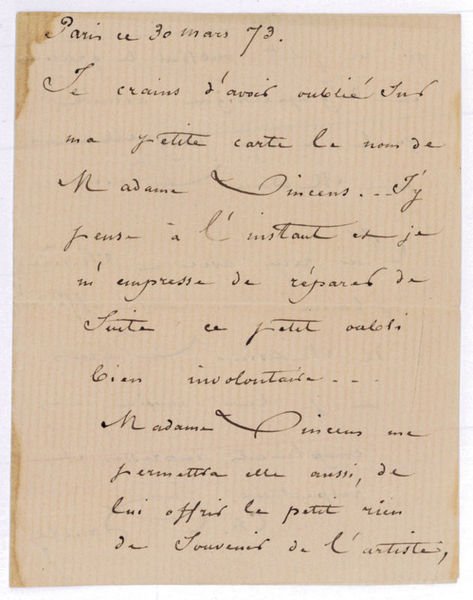 Paris ce 30 mars 73.
Je crains d'avoir oublié sur
ma petite carte le nom de
Madame Vincens. _ J'y
pense à l'instant et je
m'empresse de réparer de
suite ce petit oubli
bien involontaire _ _ _
Madame Vincens me
permettra elle aussi, de
lui offrir le petit rien
de souvenir de l'artiste,